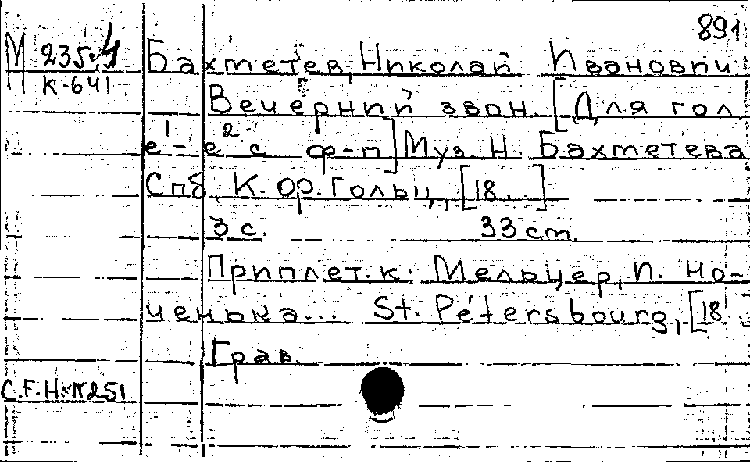 891
М 235.4 Бахметев, Николай Иванович
К-641 Вечерний звон. [Для гол
e¹-e² с ф-п] Муз. Н. Бахметева
Спб, К. Ф. Гольц, [18...]
3 с. 33 cm.
Приплет. к: Мельцер, П. Но-
ченька... St. Pétersbourg, [18
Грав.